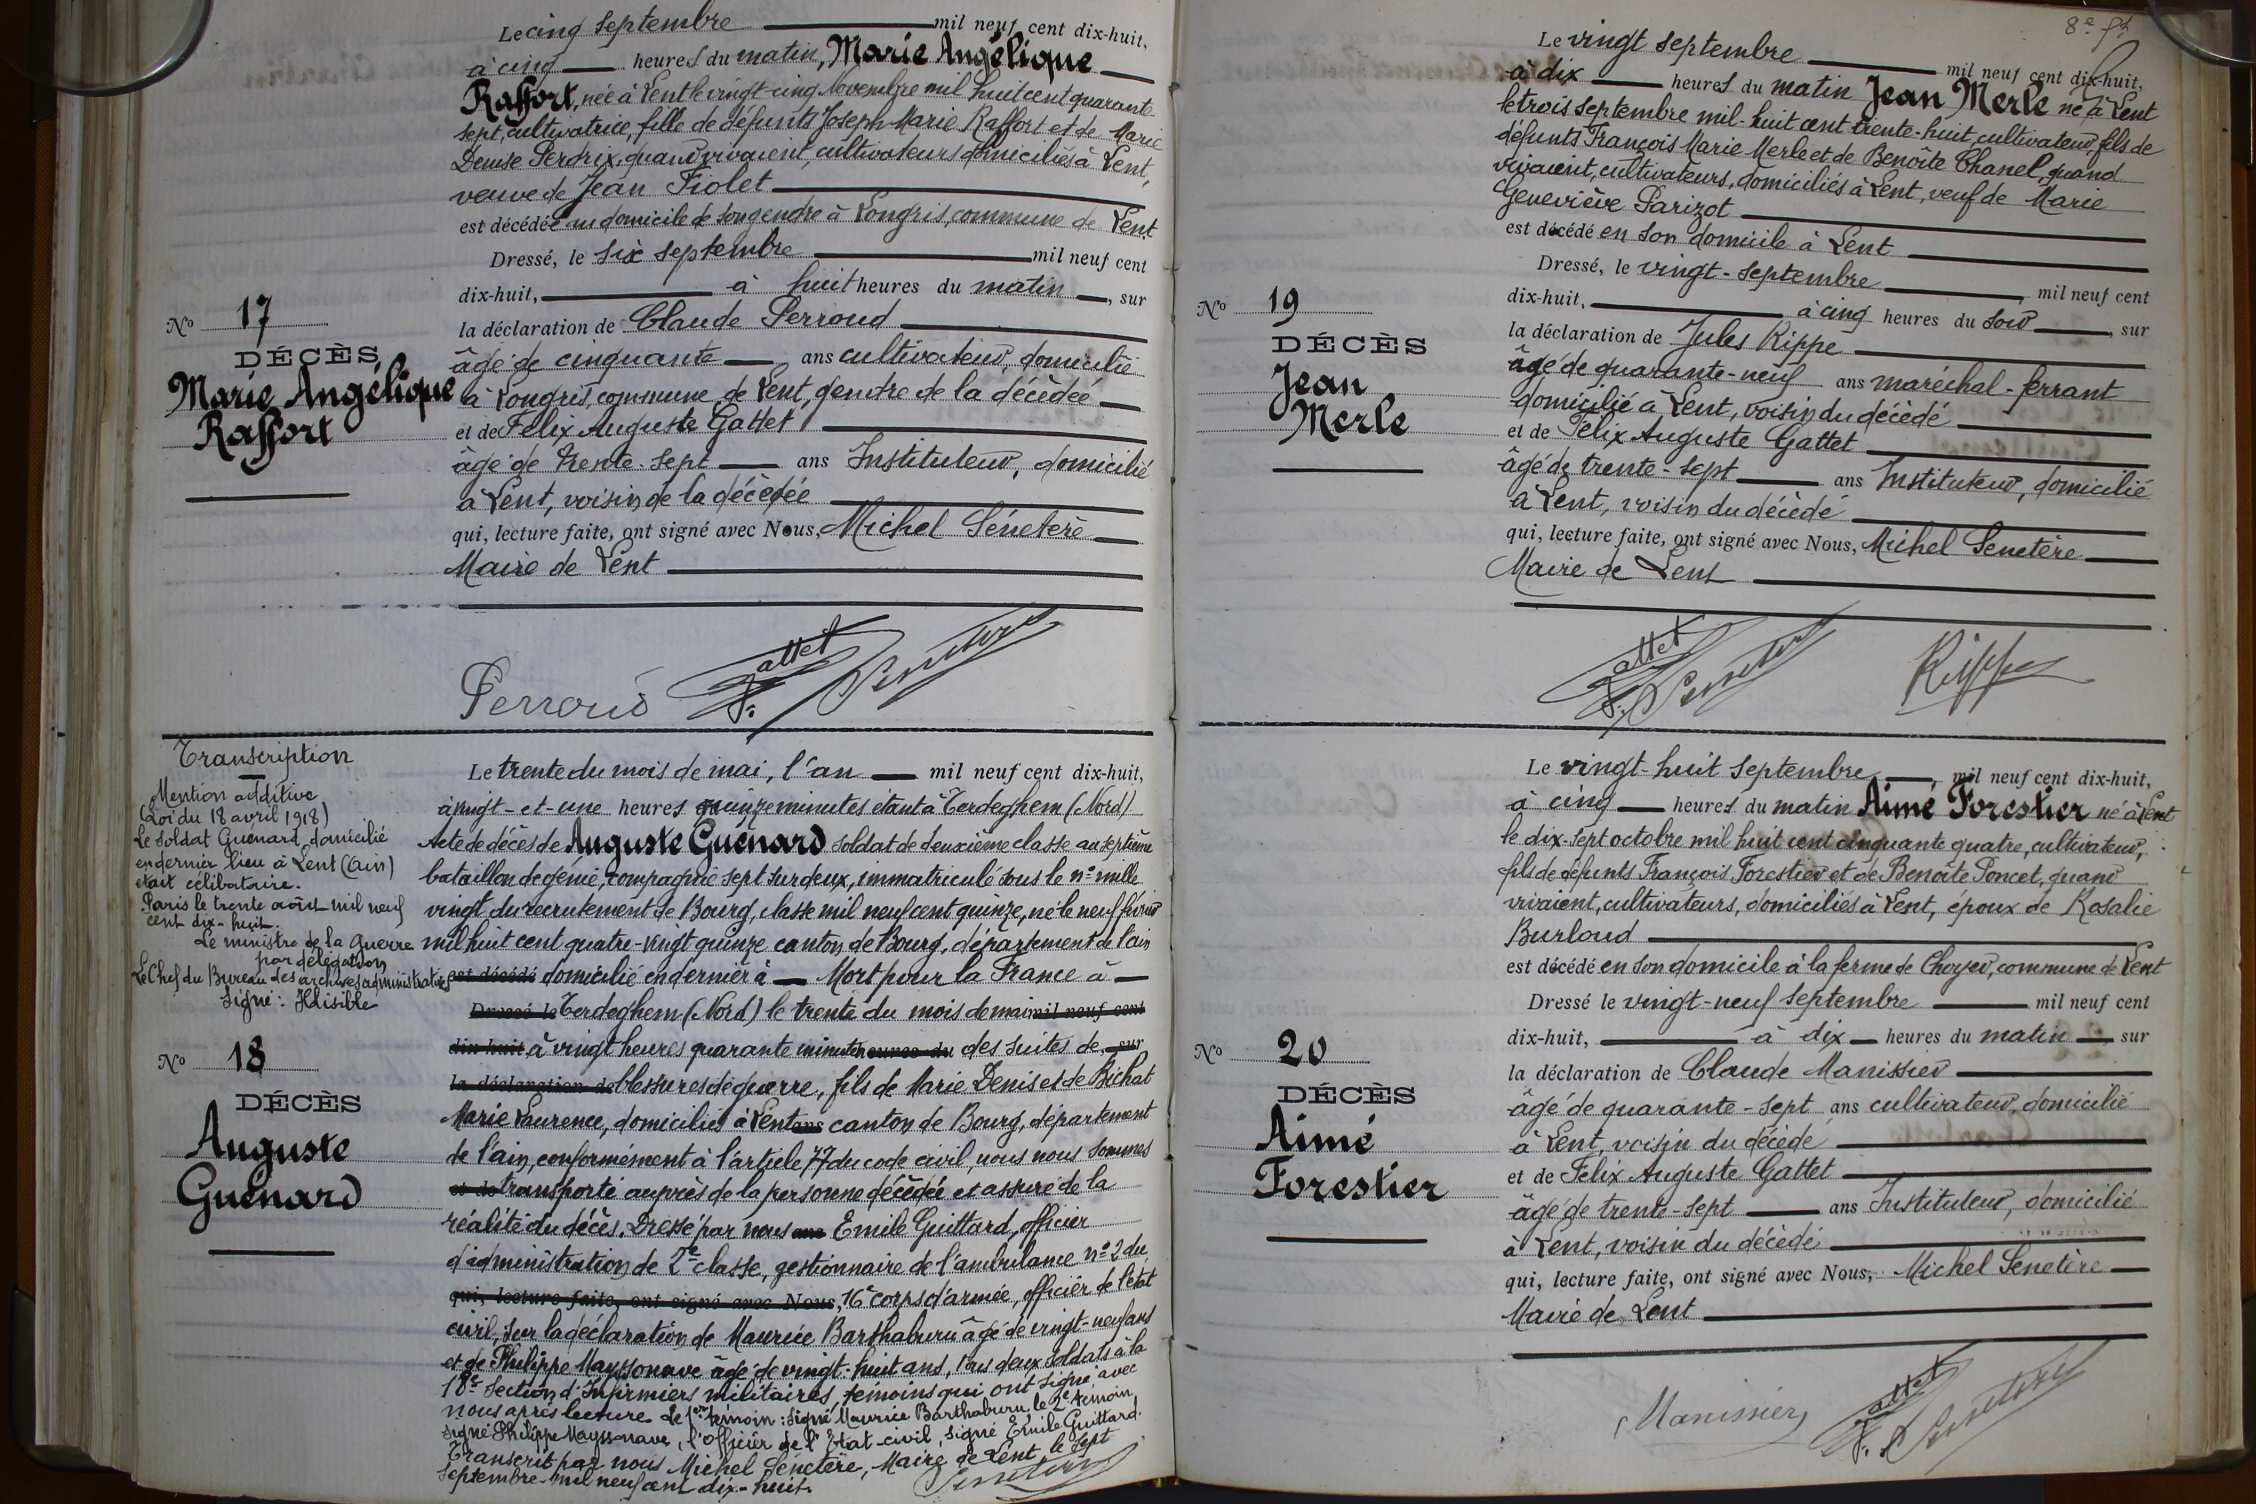 Le cinq septembre mil neuf cent dix-huit,
à cinq heures du matin, Marie Angélique
Raffort, née à Lent le vingt-cinq Novembre mil huit cent quarante-
sept, cultivatrice, fille de défunts Joseph Marie Raffort et de Marie
Denise Perdrix, quand vivaient, cultivateurs domiciliés à Lent,
veuve de Jean Fiolet
est décédée au domicile de son gendre à Longris, commune de Lent.
Dressé, le six septembre mil neuf cent
dix-huit, à huit heures du matin, sur
la déclaration de Claude Perroud
âgé de cinquante ans cultivateur, domicilié
à Longris, commune de Lent, gendre de la décédée
et de Félix Auguste Gattet
âgé de trente-sept ans Instituteur, domicilié
à Lent, voisin de la décédée
qui, lecture faite, ont signé avec Nous, Michel Sénetère
Maire de Lent
No 17
DÉCÈS
Marie Angélique
Raffort
Perroud F. Gattet Senetère
Transcription
Mention additive
(Loi du 18 avril 1918)
Le soldat Guénard domicilié
en dernier lieu à Lent (Ain)
était célibataire.
Paris le trente août mil neuf
cent dix-huit.
Le ministre de la Guerre
par délégation
Le Chef du Bureau des archives administratives
Signé : Illisible
No 18
DÉCÈS
Auguste
Guénard
Le trente du mois de mai, l'an mil neuf cent dix-huit,
à vingt-et-une heures quinze minutes étant à Terdeghem (Nord)
Acte de décès de Auguste Guénard soldat de deuxième classe au septième
bataillon de génie, compagnie sept sur deux, immatriculé sous le no mille
vingt du recrutement de Bourg, classe mil neuf cent quinze, né le neuf février
mil huit cent quatre-vingt quinze canton de Bourg, département de l'ain
est décédé domicilié en dernier à Mort pour la France à
Dressé le Terdeghem (Nord) le trente du mois de mai mil neuf cent
dix-huit à vingt heures quarante minutes heures du des suites de sur
la déclaration de blessures de guerre, fils de Marie Denis et de Bichat
Marie Laurence, domiciliés à Lent ans canton de Bourg, département
de l'ain, conformément à l'article 77 du code civil, nous nous sommes
et de transporté auprès de la personne décédée et assuré de la
réalité du décès. Dressé par nous ans Emile Guittard, officier
d'administration de 2e classe, gestionnaire de l'ambulance no 2 du
qui, lecture faite, ont signé avec Nous, 16e corps d'armée, officier de l'état
civil, sur la déclaration de Maurice Barthaburu âgé de vingt-neuf ans
et de Philippe Mayssonave âgé de vingt-huit ans, tous deux soldats à la
18e Section d'Infirmiers militaires, témoins qui ont signé avec
nous après lecture. Le 1er témoin : signé Maurice Barthaburu, le 2e témoin,
signé Philippe Mayssonave, l'officier de l'Etat-civil, signé Emile Guittard.
Transcrit par nous Michel Senetère, Maire de Lent le sept
septembre mil neuf cent dix-huit.
Senetère
8e ft
Le vingt septembre mil neuf cent dix-huit,
à dix heures du matin Jean Merle né à Lent
le trois septembre mil-huit cent trente-huit, cultivateur, fils de
défunts François Marie Merle et de Benoîte Chanel, quand
vivaient, cultivateurs, domiciliés à Lent, veuf de Marie
Geneviève Parizot
est décédé en son domicile à Lent
Dressé, le vingt-septembre mil neuf cent
dix-huit, à cinq heures du soir, sur
la déclaration de Jules Rippe
âgé de quarante-neuf ans maréchal-ferrant
domicilié à Lent, voisin du décédé
et de Félix Auguste Gattet
âgé de trente-sept ans Instituteur, domicilié
à Lent, voisin du décédé
qui, lecture faite, ont signé avec Nous, Michel Senetère
Maire de Lent
No 19
DÉCÈS
Jean
Merle
F. Gattet Senetère Rippe
Le vingt-huit septembre, mil neuf cent dix-huit,
à cinq heures du matin Aimé Forestier né à Lent
le dix-sept octobre mil huit cent cinquante quatre, cultivateur,
fils de défunts François Forestier et de Benoîte Poncet, quand
vivaient, cultivateurs, domiciliés à Lent, époux de Rosalie
Burloud
est décédé en son domicile à la ferme de Choyer, commune de Lent
Dressé le vingt-neuf septembre mil neuf cent
dix-huit, à dix heures du matin sur
la déclaration de Claude Manissier
âgé de quarante-sept ans cultivateur, domicilié
à Lent, voisin du décédé
et de Félix Auguste Gattet
âgé de trente-sept ans Instituteur, domicilié
à Lent, voisin du décédé
qui, lecture faite, ont signé avec Nous, Michel Senetère
Maire de Lent
No 20
DÉCÈS
Aimé
Forestier
Manissier F. Gattet Senetère